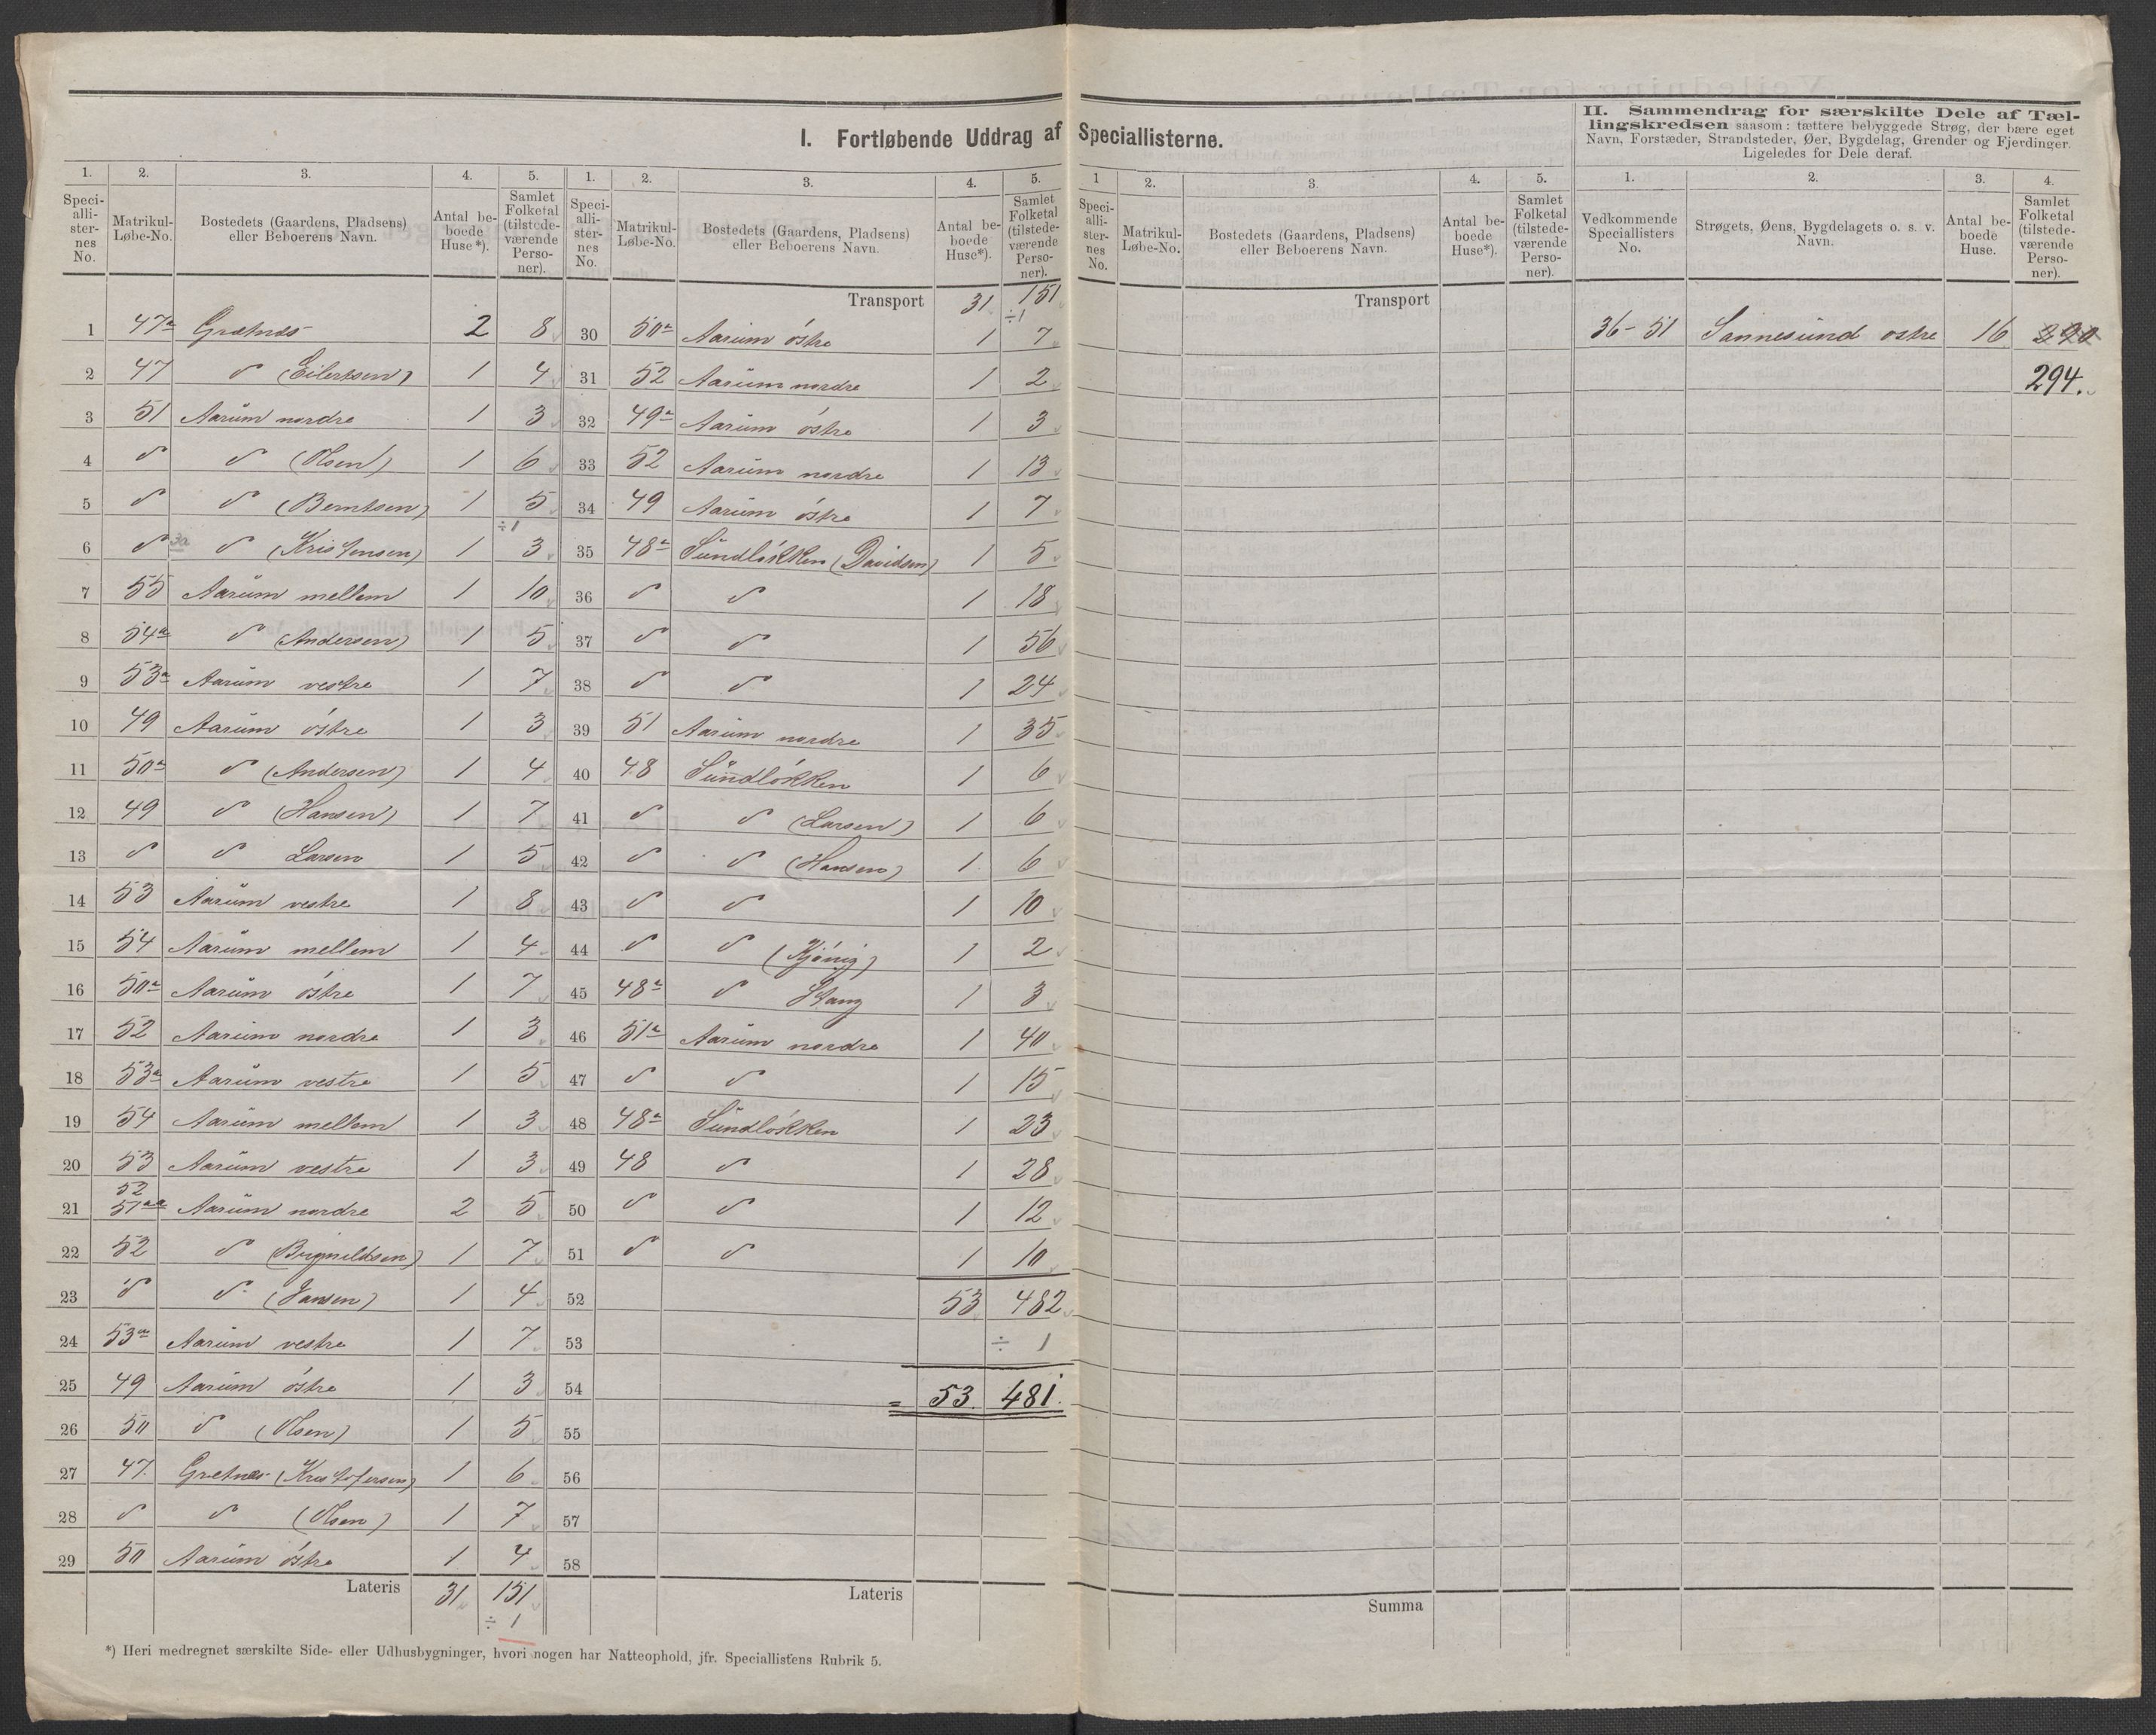 I. Fortløbende Uddrag af Speciallisterne.
II. Sammendrag for særskilte Dele af Tæl-
lingskredsen saasom: tættere bebyggede Strøg, der bære eget
Navn, Forstæder, Strandsteder, Øer, Bygdelag, Grender og Fjerdinger.
Ligeledes for Dele deraf.
1. 2. 3. 4. 5.
Speci-alli-ster-nes No. Matrikul-Løbe-No. Bostedets (Gaardens, Pladsens) eller Beboerens Navn. Antal be-boede Huse*). Samlet Folketal (tilstede-værende Perso-ner).
1 47a Grætnæs 2 8
2 47 " (Eilertsen) 1 4
3 51 Aarüm nordre 1 3
4 " " (Olsen) 1 6
5 " " (Berntsen) 1 5
÷1
6 " " (Kristensen) 1 3
7 55 Aarüm mellem 1 10
8 54a " (Andersen) 1 5
9 53a Aarüm vestre 1 7
10 49 Aarüm östre 1 3
11 50a " (Andersen) 1 4
12 49 " (Hansen) 1 7
13 " " Larsen 1 5
14 53 Aarüm vestre 1 8
15 54 Aarüm mellem 1 4
16 50a Aarüm östre 1 7
17 52 Aarüm nordre 1 3
18 53a Aarüm vestre 1 5
19 54 Aarüm mellem 1 3
20 53 Aarüm vestre 1 3
52
21 51aa Aarüm nordre 2 5
22 52 " 1 7
23 " " (Jansen) 1 4
24 53a Aarüm vestre 1 7
25 49 Aarüm östre 1 3
26 50 " (Olsen) 1 5
27 47. Gretnæs (Kristofersen) 1 6
28 " " (Olsen) 1 7
29 50 Aarüm östre 1 4
Lateris 31 151
÷ 1
*) Heri medregnet særskilte Side- eller Udhusbygninger, hvori nogen har Natteophold, jfr. Speciallistens Rubrik 5.
1. 2. 3. 4. 5.
Speci-alli-ster-nes No. Matrikul-Løbe-No. Bostedets (Gaardens, Pladsens) eller Beboerens Navn. Antal be-boede Huse*). Samlet Folketal (tilstede-værende Perso-ner).
Transport 31 151
÷1
30 50a Aarüm östre 1 7
31 52 Aarüm nordre 1 2
32 49a Aarüm östre 1 3
33 52 Aarüm nordre 1 13
34 49 Aarüm östre 1 7
35 48a Sündlökken (Davidsen) 1 5
36 " " 1 18
37 " " 1 56
38 " " 1 24
39 51 Aarüm nordre 1 35
40 48 Sündlökken 1 6
41 " " (Larsen) 1 6
42 " " (Hansen) 1 6
43 " " 1 10
44 " " 1 2
45 48a " Stang 1 3
46 51a Aarüm nordre 1 40
47 " " 1 15
48 48a Sündlökken 1 23
49 48 " 1 28
50 " " 1 12
51 " " 1 10
52 53 482
53 ÷ 1
54 = 53. 481.
55
56
57
58
Lateris
1 2. 3. 4. 5.
Speci-alli-ster-nes No. Matrikul-Løbe-No. Bostedets (Gaardens, Pladsens) eller Beboerens Navn. Antal be-boede Huse*). Samlet Folketal (tilstede-værende Perso-ner).
Transport
Summa
1. 2. 3. 4.
Vedkommende Speciallisters No. Strøgets, Øens, Bygdelagets o. s. v. Navn. Antal be-boede Huse. Samlet Folketal (tilstede-værende Perso-ner).
36-51 Sannesund ostre 16 290
294.